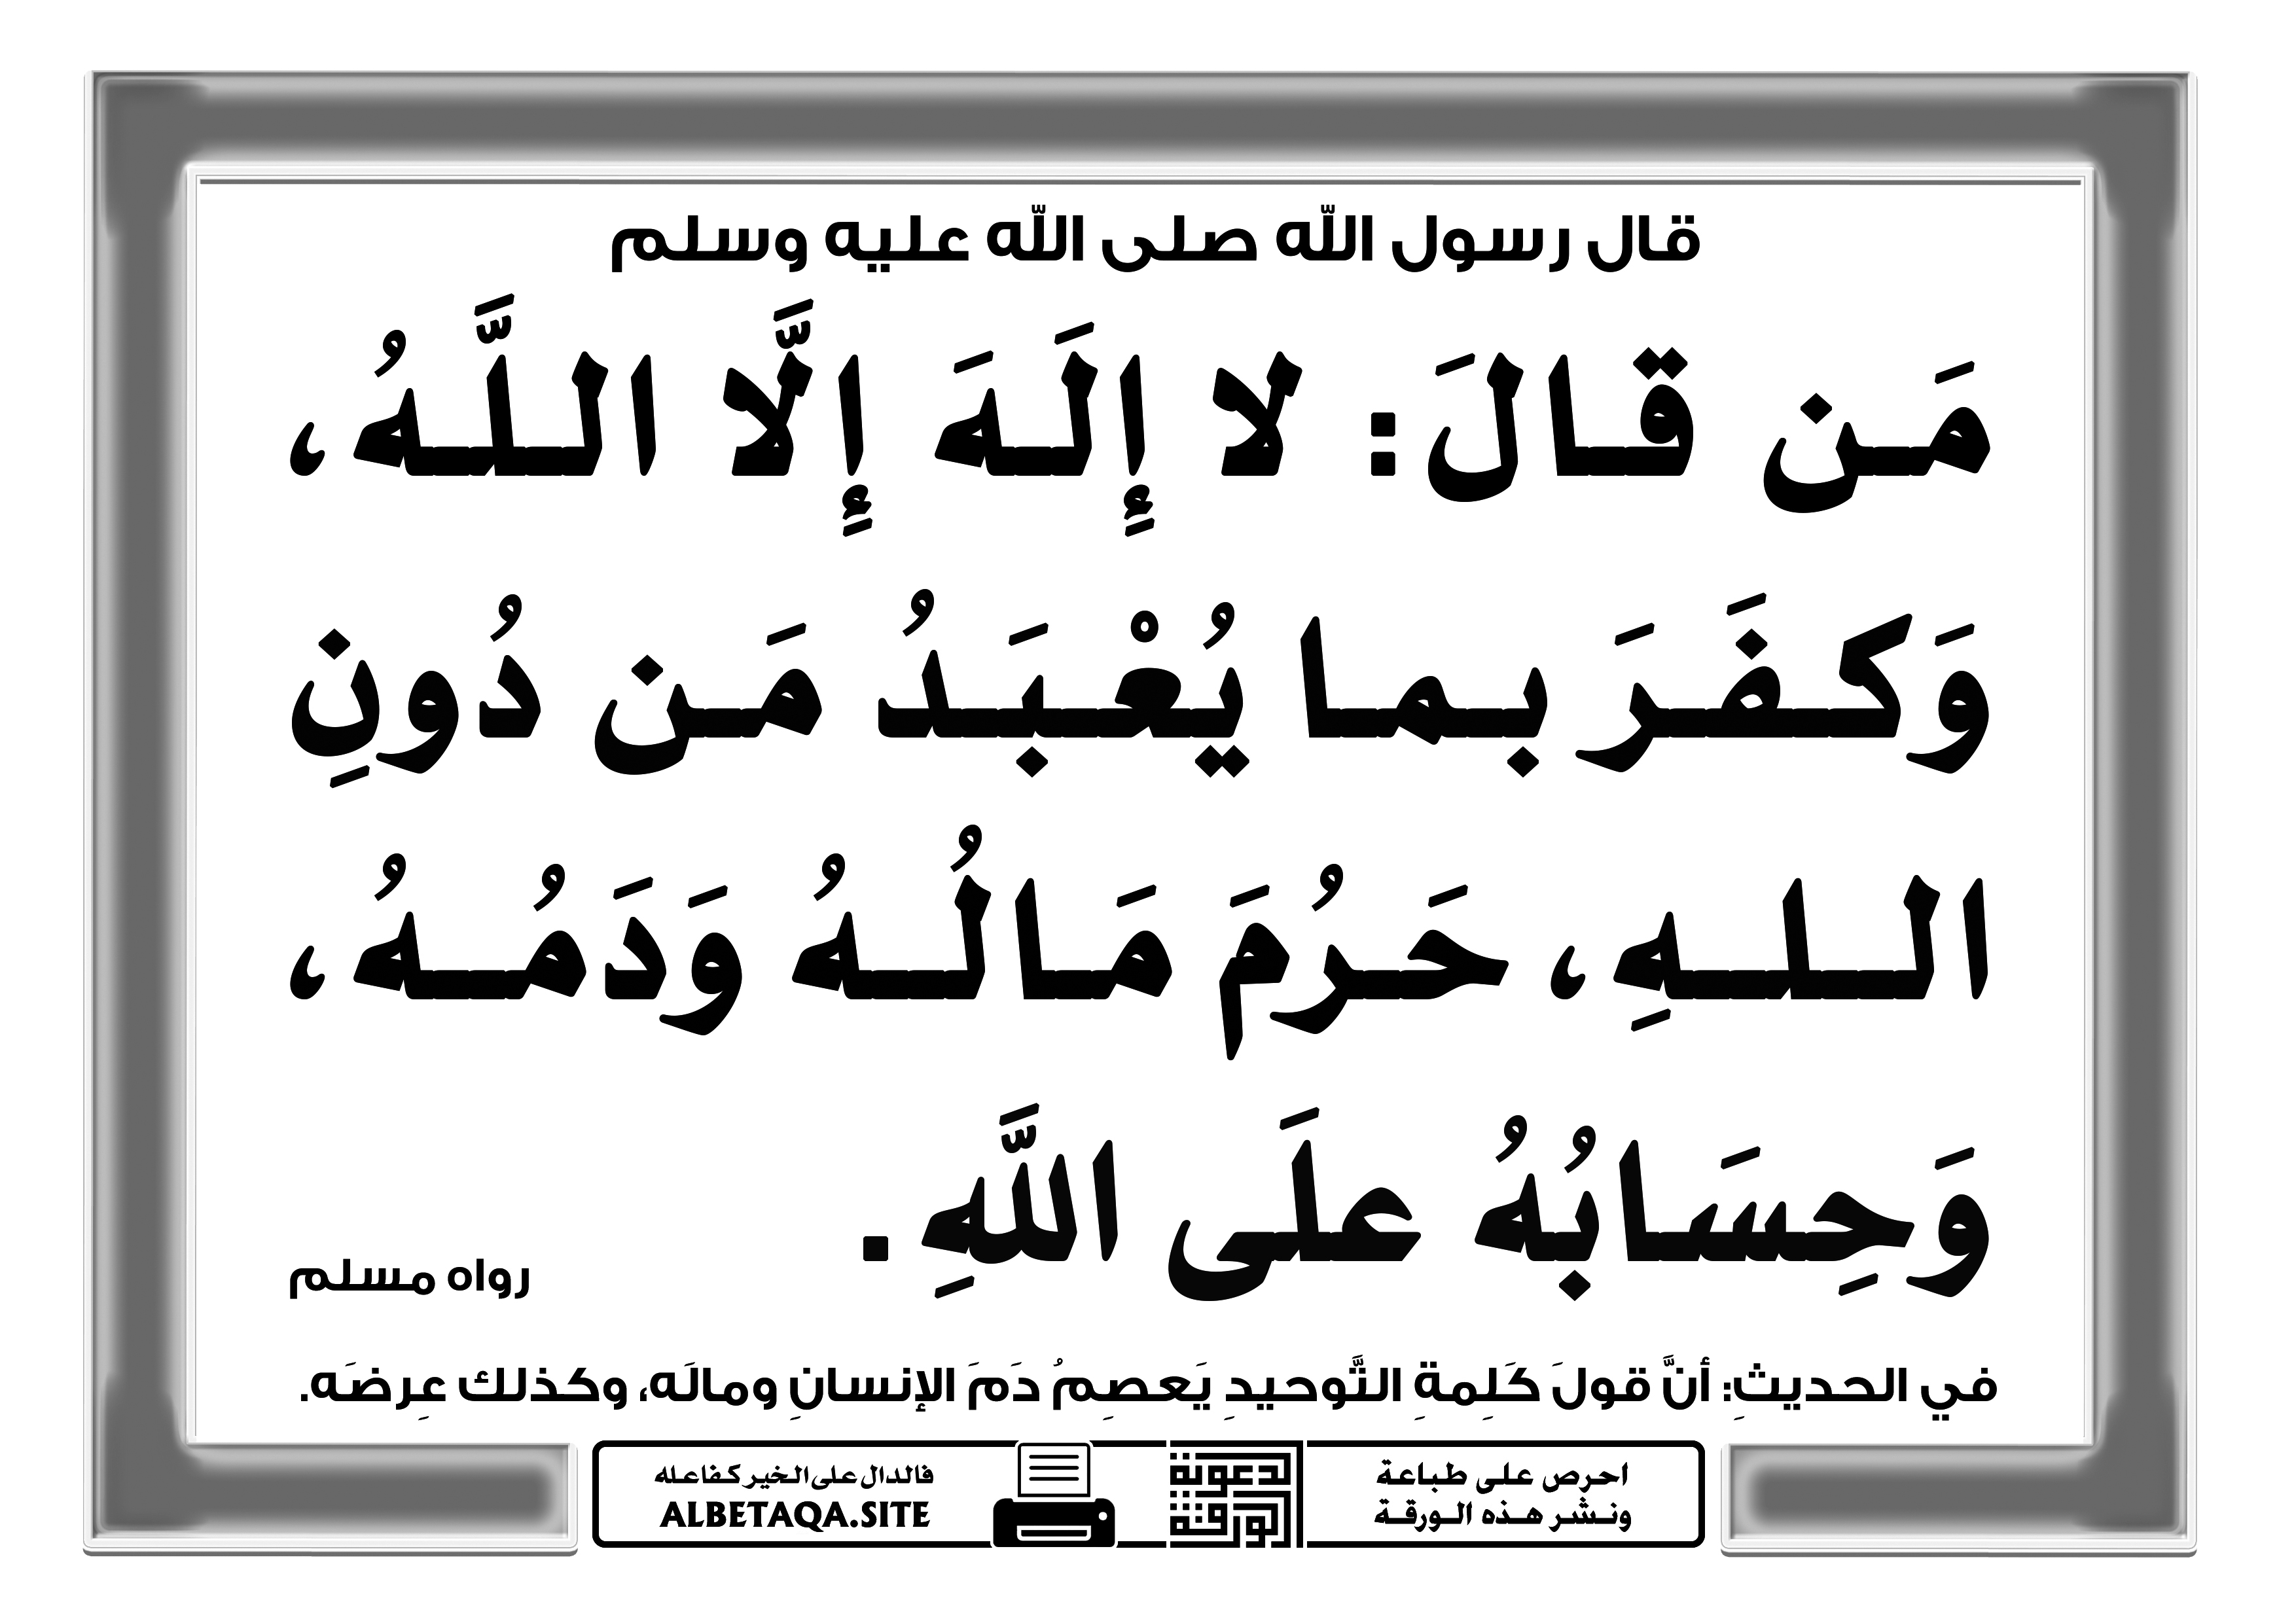 قال رسول الله صلى الله عليه وسلم
مَن قالَ: لا إِلَهَ إِلَّا اللَّهُ،
وَكَفَرَ بما يُعْبَدُ مَن دُونِ
اللهِ، حَرُمَ مَالُهُ وَدَمُهُ،
وَحِسَابُهُ علَى اللَّهِ.
رواه مسلم
في الحديثِ: أنَّ قولَ كَلِمةِ التَّوحيدِ يَعصِمُ دَمَ الإنسانِ ومالَه، وكذلك عِرضَه.
احرص على طباعة
ونشر هذه الورقة
الدعوية
الورقة
فالدال على الخير كفاعله
ALBETAQA.SITE